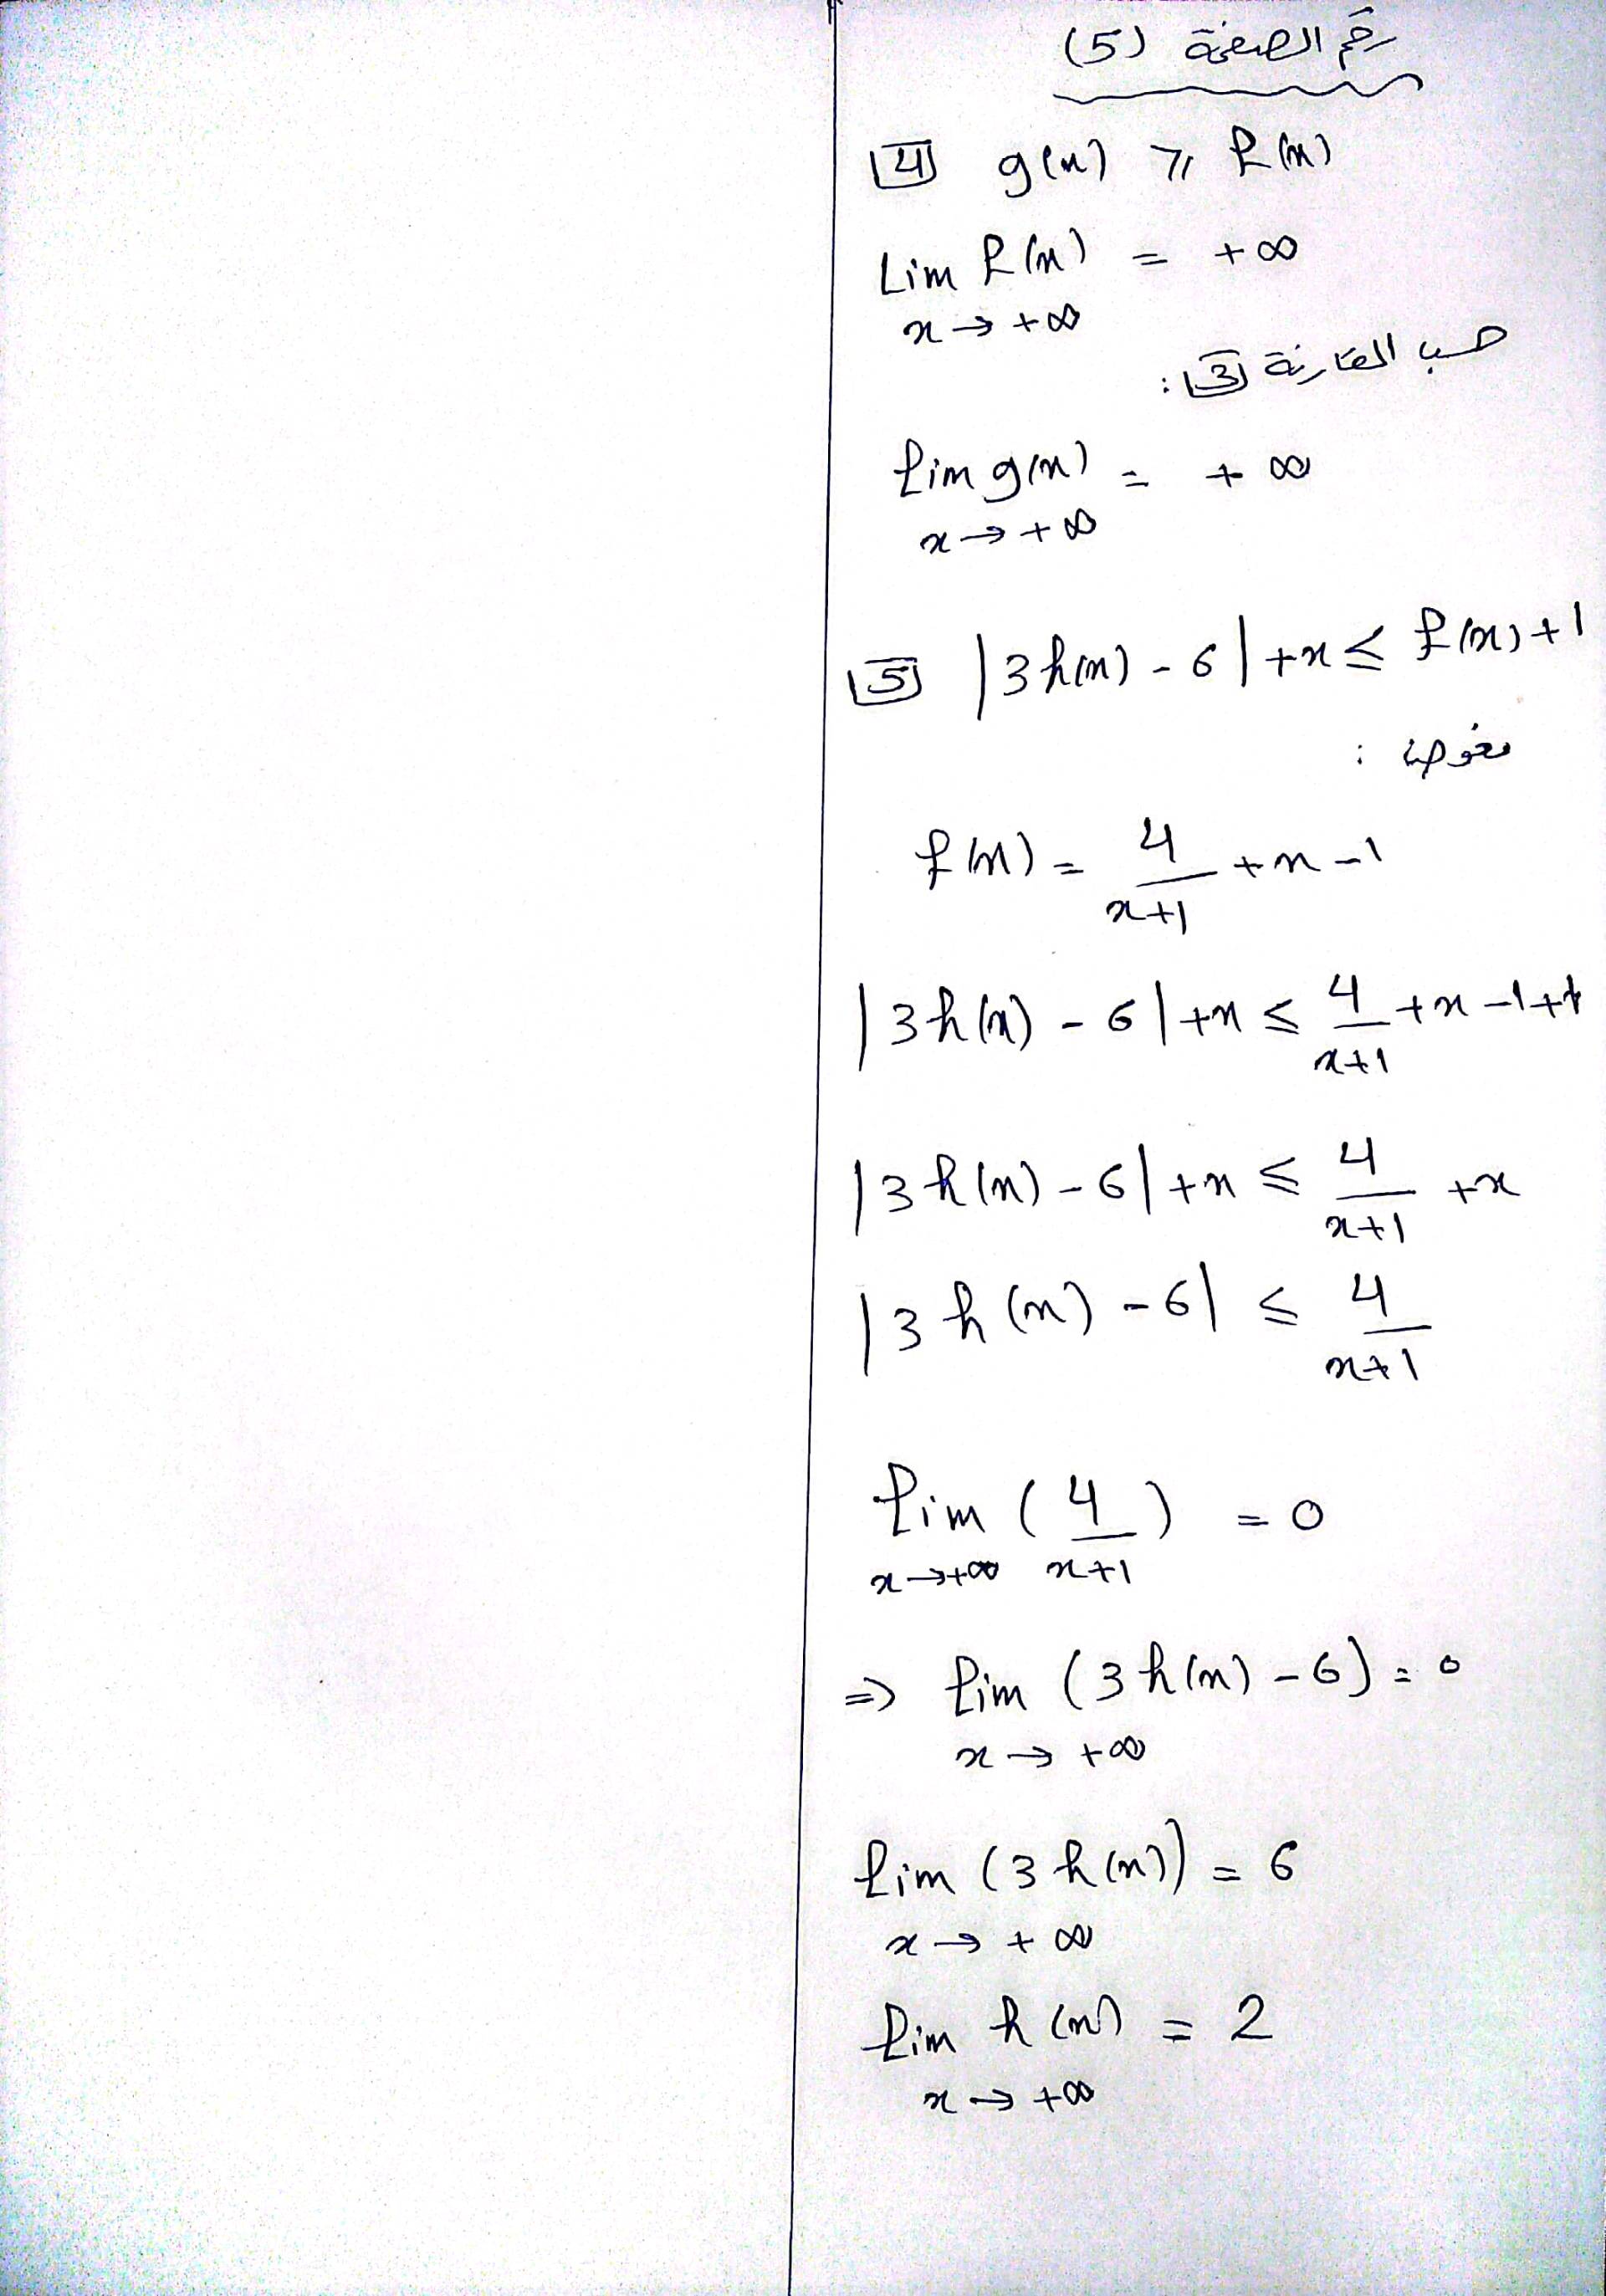 رقم الصفحة (5)
4 g(x) ≥ f(x)
Lim f(x) = +∞
x → +∞
حسب المقارنة 3 :
lim g(x) = +∞
x → +∞
5 |3h(x) - 6| + x ≤ f(x) + 1
نعوض :
f(x) = 4 + x - 1
x+1
|3h(x) - 6| + x ≤ 4 + x - 1 + 1
x+1
|3h(x) - 6| + x ≤ 4 + x
x+1
|3h(x) - 6| ≤ 4
x+1
lim (4) = 0
x → +∞ x+1
⇒ lim (3h(x) - 6) = 0
x → +∞
lim (3h(x)) = 6
x → +∞
lim h(x) = 2
x → +∞